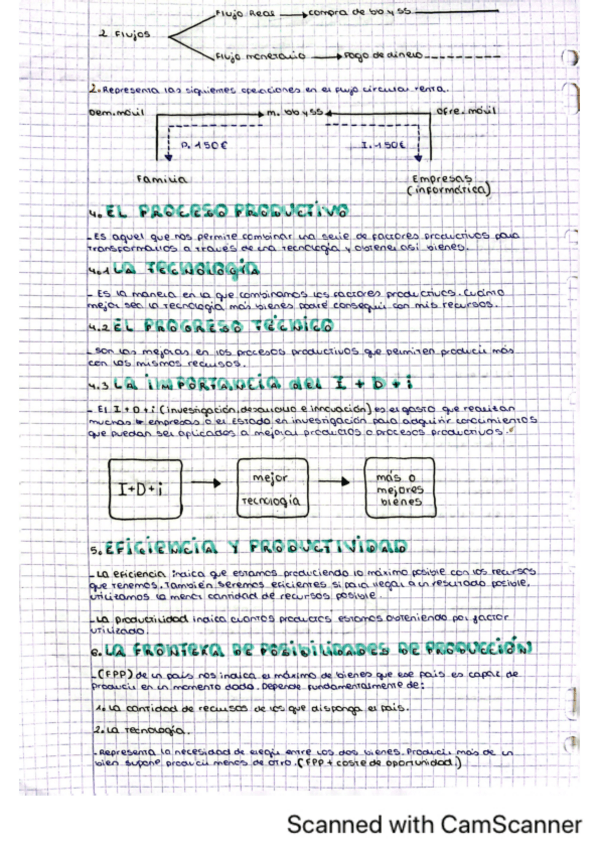 Flujo Real → compra de bb y ss
2 Flujos
Flujo monetario → pago de dinero
2. Representa las siguientes operaciones en el flujo circular renta.
Dem. móvil m. bb y ss ofre. móvil
P. 150€ I. 150€
Familia Empresas
(informática)
4. EL PROCESO PRODUCTIVO
- Es aquel que nos permite combinar una serie de factores productivos para
transformarlos a través de una tecnología y obtener así bienes.
4.1 LA TECNOLOGÍA
- Es la manera en la que combinamos los factores productivos. Cuánto
mejor sea la tecnología más bienes podré conseguir con mis recursos.
4.2 EL PROGRESO TÉCNICO
- Son las mejoras en los procesos productivos que permiten producir más
con los mismos recursos.
4.3 LA IMPORTANCIA DEL I + D + i
- El I + D + i (investigación, desarrollo e innovación) es el gasto que realizan
muchas empresas o el Estado en investigación para adquirir conocimientos
que puedan ser aplicados a mejorar productos o procesos productivos.
I+D+i → mejor tecnología → más o mejores bienes
5. EFICIENCIA Y PRODUCTIVIDAD
- La eficiencia indica que estamos produciendo lo máximo posible con los recursos
que tenemos. También seremos eficientes si para llegar a un resultado posible,
utilizamos la menor cantidad de recursos posible.
- La productividad indica cuantos productos estamos obteniendo por factor
utilizado.
6. LA FRONTERA DE POSIBILIDADES DE PRODUCCIÓN
- (FPP) de un país nos indica el máximo de bienes que ese país es capaz de
producir en un momento dado. Depende fundamentalmente de:
1. La cantidad de recursos de los que disponga el país.
2. La tecnología.
. Representa la necesidad de elegir entre los dos bienes. Producir más de un
bien supone producir menos de otro. (FPP + coste de oportunidad.)
Scanned with CamScanner